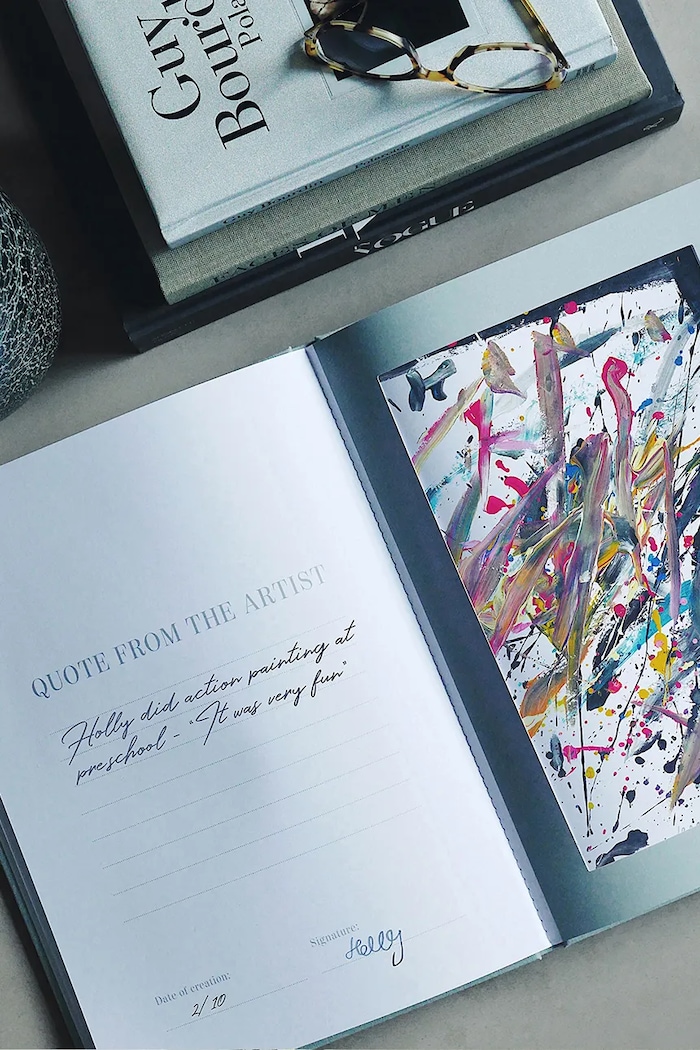 Guy
Bourd
Pola
VOGUE
QUOTE FROM THE ARTIST
Holly did action painting at
preschool - "It was very fun"
Signature:
Holly
Date of creation:
2/10